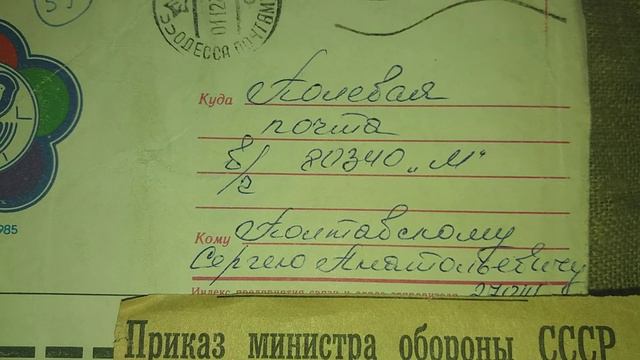 ОДЕССА ПОЧТАМ
Куда Полевая
почта
в/ч 20340 „М"
Кому Полтавскому
Сергею Анатольевичу
Индекс предприятия связи и адрес отправителя
985
Приказ министра обороны СССР